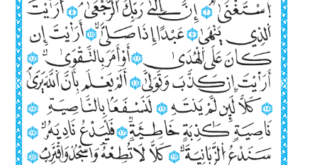 ٱسْتَغْنَىٰٓ ۝٧ إِنَّ إِلَىٰ رَبِّكَ ٱلرُّجْعَىٰٓ ۝٨ أَرَءَيْتَ
ٱلَّذِى يَنْهَىٰ ۝٩ عَبْدًا إِذَا صَلَّىٰٓ ۝١٠ أَرَءَيْتَ إِن
كَانَ عَلَى ٱلْهُدَىٰٓ ۝١١ أَوْ أَمَرَ بِٱلتَّقْوَىٰٓ ۝١٢
أَرَءَيْتَ إِن كَذَّبَ وَتَوَلَّىٰٓ ۝١٣ أَلَمْ يَعْلَم بِأَنَّ ٱللَّهَ يَرَىٰ
۝١٤ كَلَّا لَئِن لَّمْ يَنتَهِ ۝ لَنَسْفَعًۢا بِٱلنَّاصِيَةِ ۝١٥
نَاصِيَةٍ كَـٰذِبَةٍ خَاطِئَةٍ ۝١٦ فَلْيَدْعُ نَادِيَهُۥ ۝١٧
سَنَدْعُ ٱلزَّبَانِيَةَ ۝١٨ كَلَّا لَا تُطِعْهُ وَٱسْجُدْ وَٱقْتَرِب